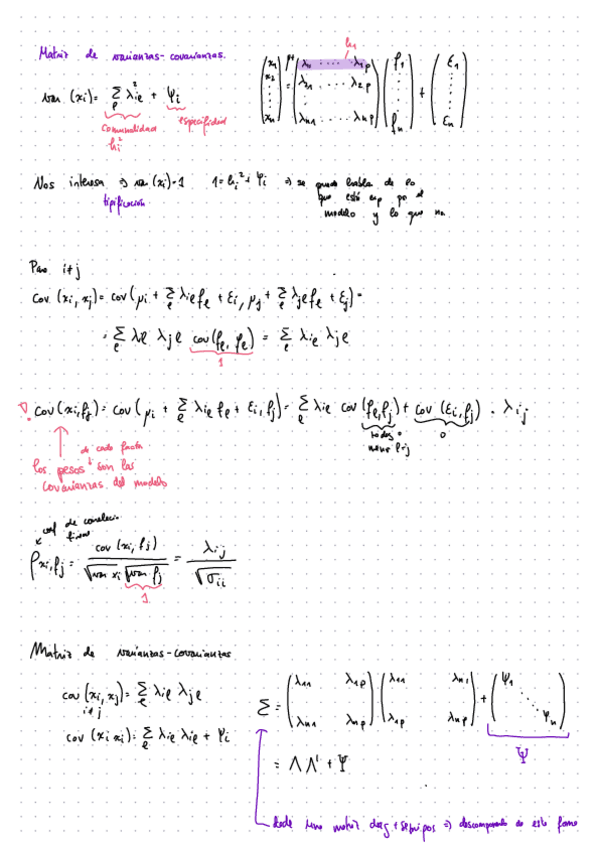 Matriz de varianzas-covarianzas.
var (xi) = Σ_e λ²ie + ψi
comunalidad especificidad
hi²
(x1 x2 ⋮ xn) = μ + (λ11 ⋯ λ1p λ21 ⋯ λ2p ⋮ λn1 ⋯ λnp) (f1 ⋮ fn) + (ε1 ⋮ εn)
Nos interesa ⇒ var (xi) = 1 1 = hi² + ψi ⇒ se puede hablar de lo
tipificación
que está exp por el
modelo y lo que no
Para i≠j
Cov (xi, xj) = cov (μi + Σ_e λie fe + εi, μj + Σ_e λje fe + εj) =
= Σ_e λie λje cov(fe, fe) = Σ_e λie λje
1
cov (xi, fj) = cov (μi + Σ_e λie fe + εi, fj) = Σ_e λie cov (fe, fj) + cov (εi, fj) = λij
todos 0
menos
0
de cada factor
los pesos son las
covarianzas del modelo
coef de correlación
ρxi,fj = cov (xi, fj) / √var xi √var fj = λij / √σii
1
Matriz de varianzas-covarianzas
cov (xi, xj) = Σ_e λie λje
i≠j
cov (xi xi) = Σ_e λie λie + ψi
Σ = (λ11 λ1p λn1 λnp) (λ11 λn1 λ1p λnp) + (ψ1 ⋱ ψn)
Ψ
= Λ Λ' + Ψ
dada una matriz def + semipos ⇒ de esta forma